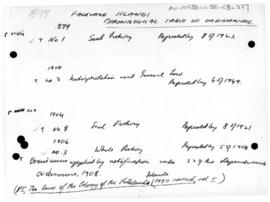 1899
FALKLAND ISLANDS
CHRONOLOGICAL TABLE OF ORDINANCES.
1899
No 1 Seal Fishery Repealed by 8 of 1921.
1900
No 3 Interpretation and General Law Repealed by
1904
No 8 Seal Fishery Repealed by 8 of 1921
1906
No. 3 Whale Fishery Repealed by 5 of
Ordinances applied by notification under the Dependencies
Ordinance, 1908.
(PS, The Laws of the Colony of the Falkland Islands (1950 revised, vol. I)